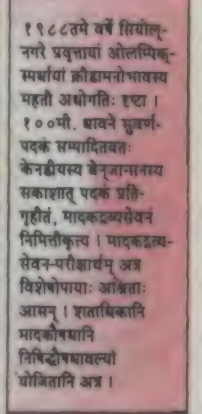 १९८८तमे वर्षे सियोल्-
नगरे प्रवृत्तायां ओलम्पिक्-
स्पर्धायां क्रीडामनोभावस्य
महती अधोगतिः दृष्टा ।
१००मी. धावने सुवर्ण-
पदकं सम्पादितवतः
केनडीयस्य बेन्जान्सनस्य
सकाशात् पदकं प्रति-
गृहीतं, मादकद्रव्यसेवनं
निमित्तीकृत्य । मादकद्रव्य-
सेवन-परीक्षार्थम् अत्र
विशेषोपायाः आश्रिताः
आसन् । शताधिकानि
मादकौषधानि
निषिद्धौषधावल्यां
योजितानि अत्र ।